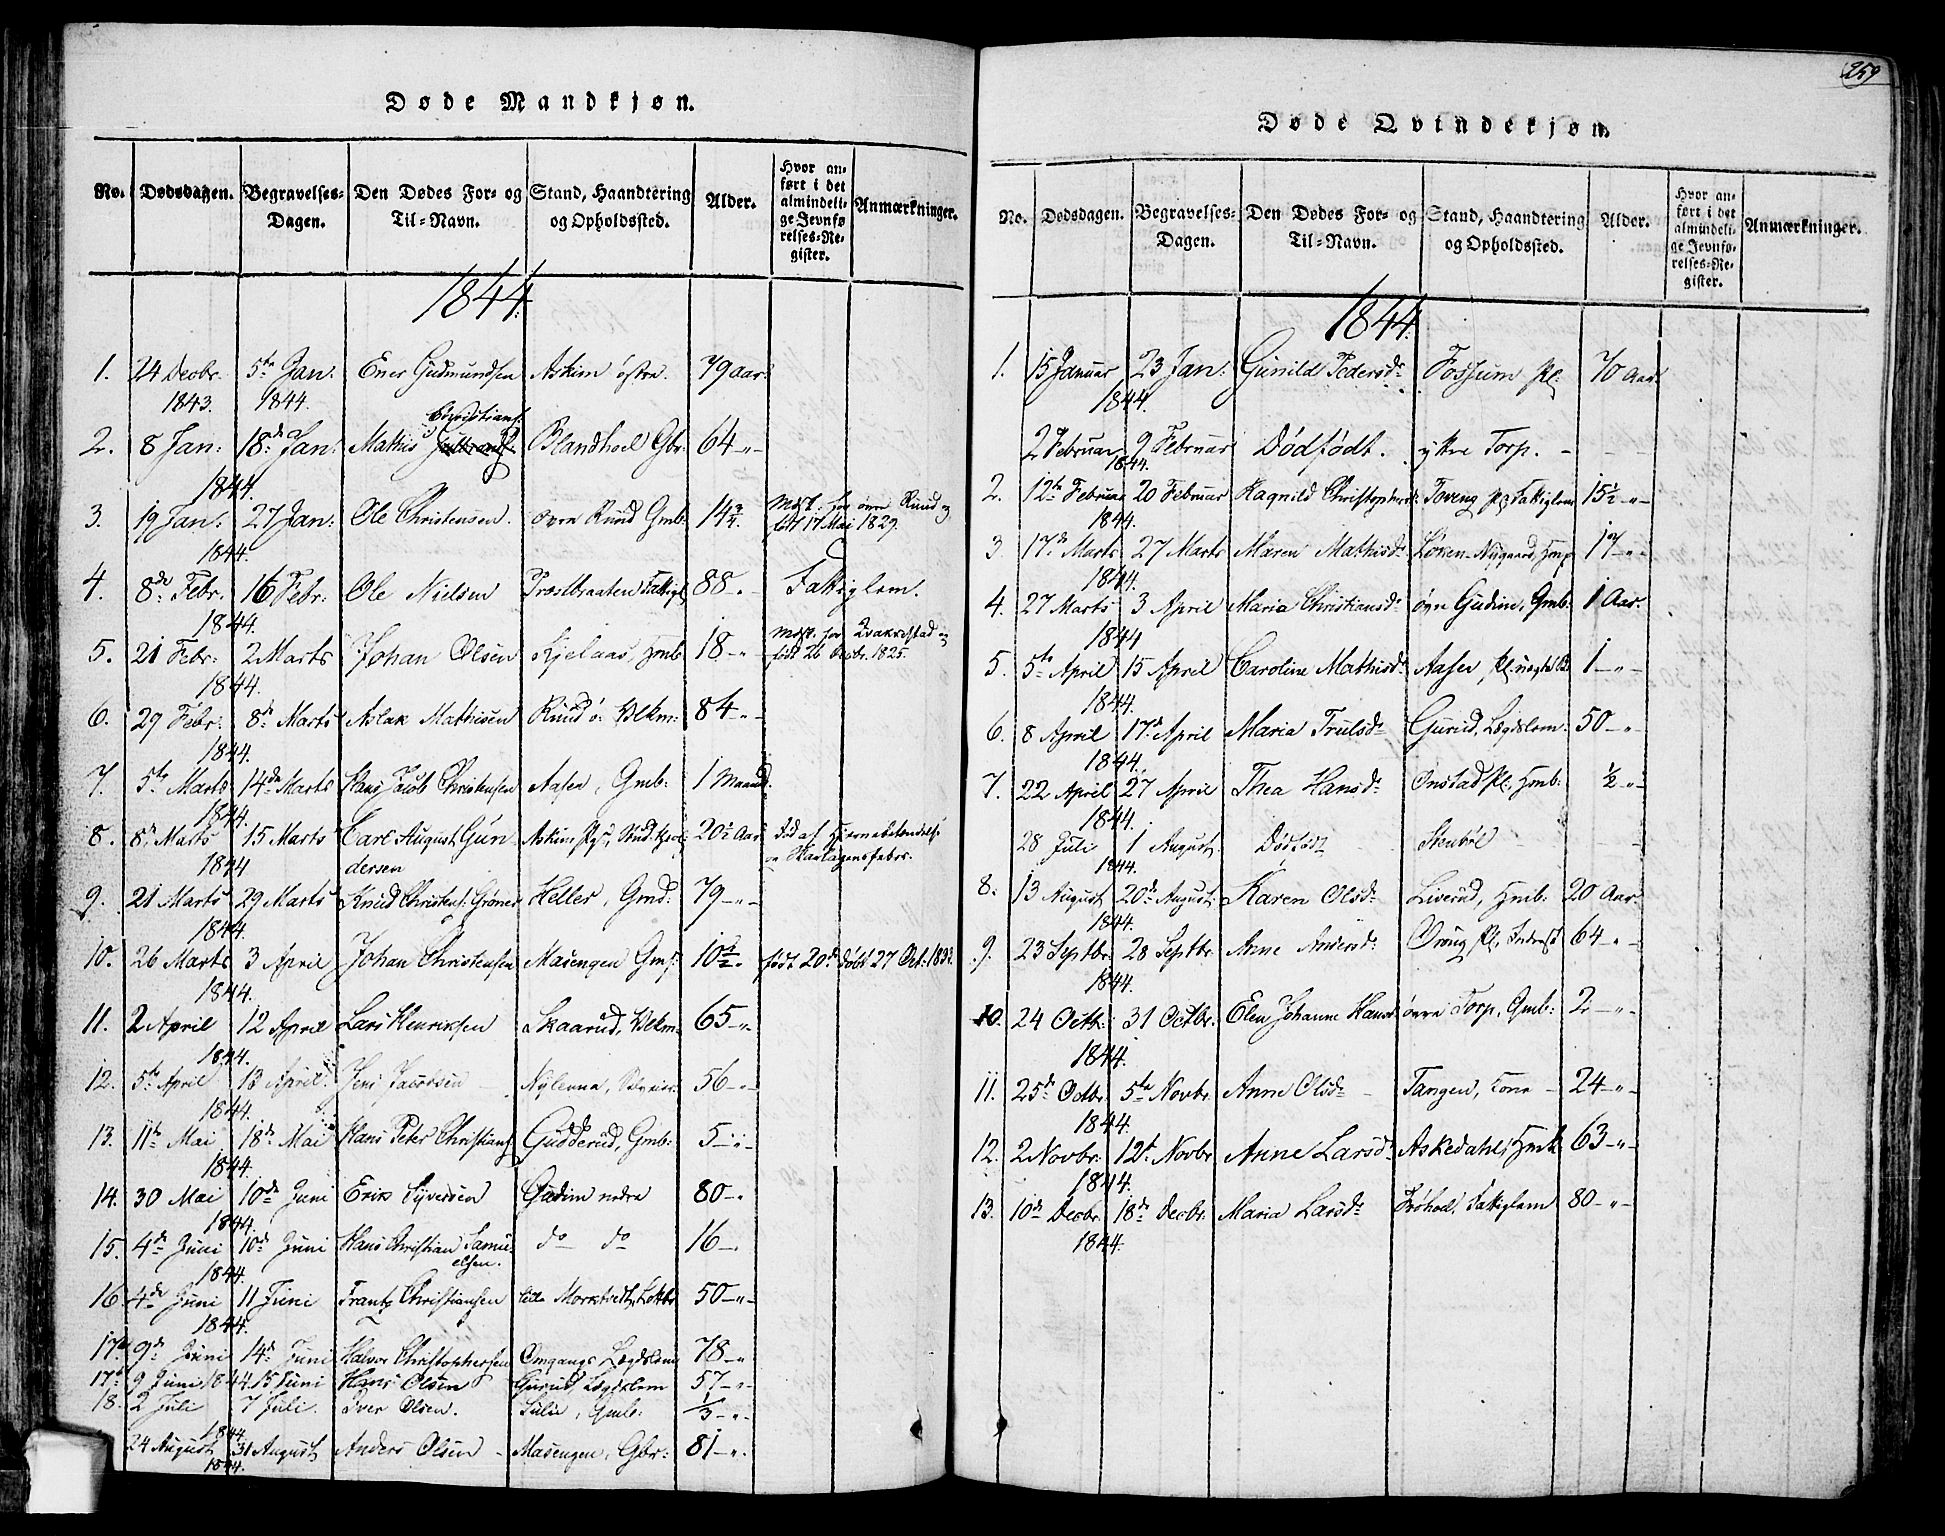 259
Døde Mandkjøn.
No. Dødsdagen. Begravelses-Dagen. Den Dødes For- og Til-Navn. Stand, Haandtering og Opholdssted. Alder. Hvor anført i det almindelige Jevnførelses-Register. Anmærkninger.
1844.
1. 24 Decbr. 1843. 5te Jan: 1844. Ener Gudmundsen Askim østre. 79 aar.
2. 8 Jan: 18de Jan: 1844. Mathis Christians: Blandhoel Gbr: 64 -"-
3. 19 Jan: 27 Jan: 1844. Ole Christensen. øvre Rud Gmb: 14 3/4. født 17 Mai 1829.
4. 8de Febr. 16 Febr: 1844. Ole Nielsen Fattigl. 88 ". Fattiglem.
5. 21 Febr: 2 Marts 1844. Johan Olsen Kjelaas, Hmb 18 -" født 26 Decbr. 1825.
6. 29 Febr: 8de Marts 1844. Aslak Mathisen Rud ø: 84 -"-
7. 5te Marts 14de Marts 1844. Hans Jacob Christensen Aasen, Gmb: 1 Maaned.
8. 8de Marts 15 Marts 1844 Carl August Gundersen 20½ Aar død af Hjernebetændelse og Skarlagensfeber.
9. 21 Marts 29 Marts 1844. Knud Christens: Heller, Gmd: 79 -"-
10. 26 Marts 3 April 1844. Johan Christensen Masengen Gms: 10½ ". født 20de døbt 27 Oct:
11. 2 April 12 April 1844. Lars Henriksen Skaarud, 65 -".
12. 5te April 13 April: 1844. Jens Jacobsen 56 -"-
13. 11te Mai 18de Mai 1844. Hans Peter Christians: Gudderud, Gmb: 5 -"-
14. 30 Mai 10de Juni 1844. Erik Syversen Gudim nedre 80 -"
15. 4de Juni 10de Juni 1844. Hans Christian Samuelsen. do do 16 -.
16 4de Juni 11 Juni 1844. Frantz Christiansen lille 50 -"-
17. 9de Juni 14de Juni Halvor Christophersen Omgangs Lægdslem 78 -"
17b 9 Juni 1844. 15 Juni Hans Olsen Gurud, Lægdslem 57 -"-
18. 2 Juli 7 Juli. 1844. Iver Olsen. Gmb: 1/3 -"-
24 August 31 August 1844. Anders Olsen - Masengen, Gbr: 81 -".
Døde Qvindekjøn.
No. Dødsdagen. Begravelses-Dagen. Den Dødes For- og Til-Navn. Stand, Haandtering og Opholdssted. Alder. Hvor anført i det almindelige Jevnførelses-Register. Anmærkninger.
1844.
1. 15 Januar 23 Jan: 1844. Gunild Pedersdr Fossum Pl: 70 Aar.
2 Februar 9 Februar 1844. Dødfødt. ytre Torp. -
2. 12te Februar 20 Februar 1844. Ragnild Christophersdr Toveng Pl: Fattiglem 15½ -"-
3. 17de Marts 27 Marts 1844. Maren Mathisdr Løken-Nygaard, 17 -"-
4. 27 Marts 3 April 1844 Maria Christiansdr øvre Gudim, Gmb: 1 Aar.
5. 5te April 15 April 1844. Caroline Mathisdr Aasen 1 -"-
6. 8 April 17de April 1844. Maria Trulsdr Gurud, Lægdslem. 50 -"-
7. 22 April 27 April 1844. Thea Hansdr Onstad Pl: Hmb: ½ -"-
28 Juli 1 August 1844. Dødfødt Stenbøl
8. 13 August 20de August. 1844. Karen Olsdr Liverud, Hmb: 20 Aar.
9. 23 Septbr. 28 Septbr. 1844. Anne Andersdr. Vrong Pl, 64 -"-
10. 24 Octb: 31 Octbr: 1844. Elen Johanne Hansdr øvre Torp, Gmb: 2 -"-
11. 25de Octbr. 5te Novbr. 1844. Anne Olsdr - Tangen, Kone - 24 -"-
12. 2 Novbr: 12te Novbr 1844. Anne Larsdr Askedahl, 63 -"-
13. 10de Decbr. 18de Decbr 1844. Maria Larsdr Frøhoel, Fattiglem 80 -"-